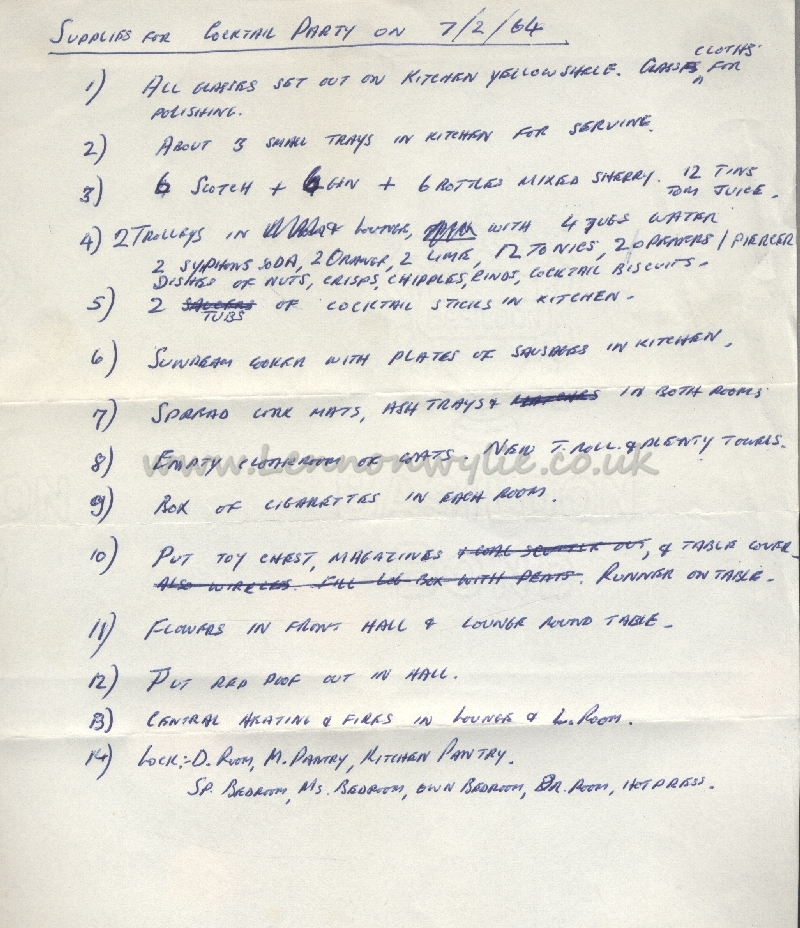 SUPPLIES FOR COCKTAIL PARTY ON 7/2/64
CLOTHS
1) ALL GLASSES SET OUT ON KITCHEN YELLOW SHELF. GLASS FOR
POLISHING.
2) ABOUT 3 SMALL TRAYS IN KITCHEN FOR SERVING.
3) 6 SCOTCH + 6 GIN + 6 BOTTLES MIXED SHERRY. 12 TINS
TOM JUICE.
4) 2 TROLLEYS IN LOUNGE, WITH 4 JUGS WATER
2 SYPHONS SODA, 2 ORANGE, 2 LIME, 12 TONICS, 2 OPENERS/PIERCER
DISHES OF NUTS, CRISPS, CHIPPLES, RINDS, COCKTAIL BISCUITS.
5) 2 SAUCERS OF COCKTAIL STICKS IN KITCHEN.
TUBS
6) SUNBEAM COOKER WITH PLATES OF SAUSAGES IN KITCHEN.
7) SPREAD CORK MATS, ASH TRAYS & MATCHES IN BOTH ROOMS
8) EMPTY CLOAKROOM OF COATS. NEW T. ROLL & PLENTY TOWELS.
www.Lennonwylie.co.uk
9) BOX OF CIGARETTES IN EACH ROOM.
10) PUT TOY CHEST, MAGAZINES & COAL SCUTTLE OUT, & TABLE COVER
ALSO WIRELESS. FILL LOG BOX WITH PEATS. RUNNER ON TABLE.
11) FLOWERS IN FRONT HALL & LOUNGE ROUND TABLE.
12) PUT RED POOF OUT IN HALL.
13) CENTRAL HEATING & FIRES IN LOUNGE & L. ROOM.
14) LOCK:- D. ROOM, M. PANTRY, KITCHEN PANTRY.
SP. BEDROOM, MS. BEDROOM, OWN BEDROOM, DR. ROOM, HOTPRESS.